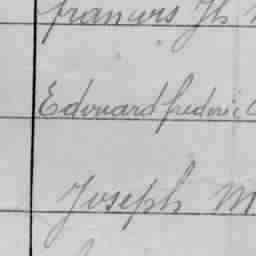 francois Jh
Edouard frederic
Joseph M